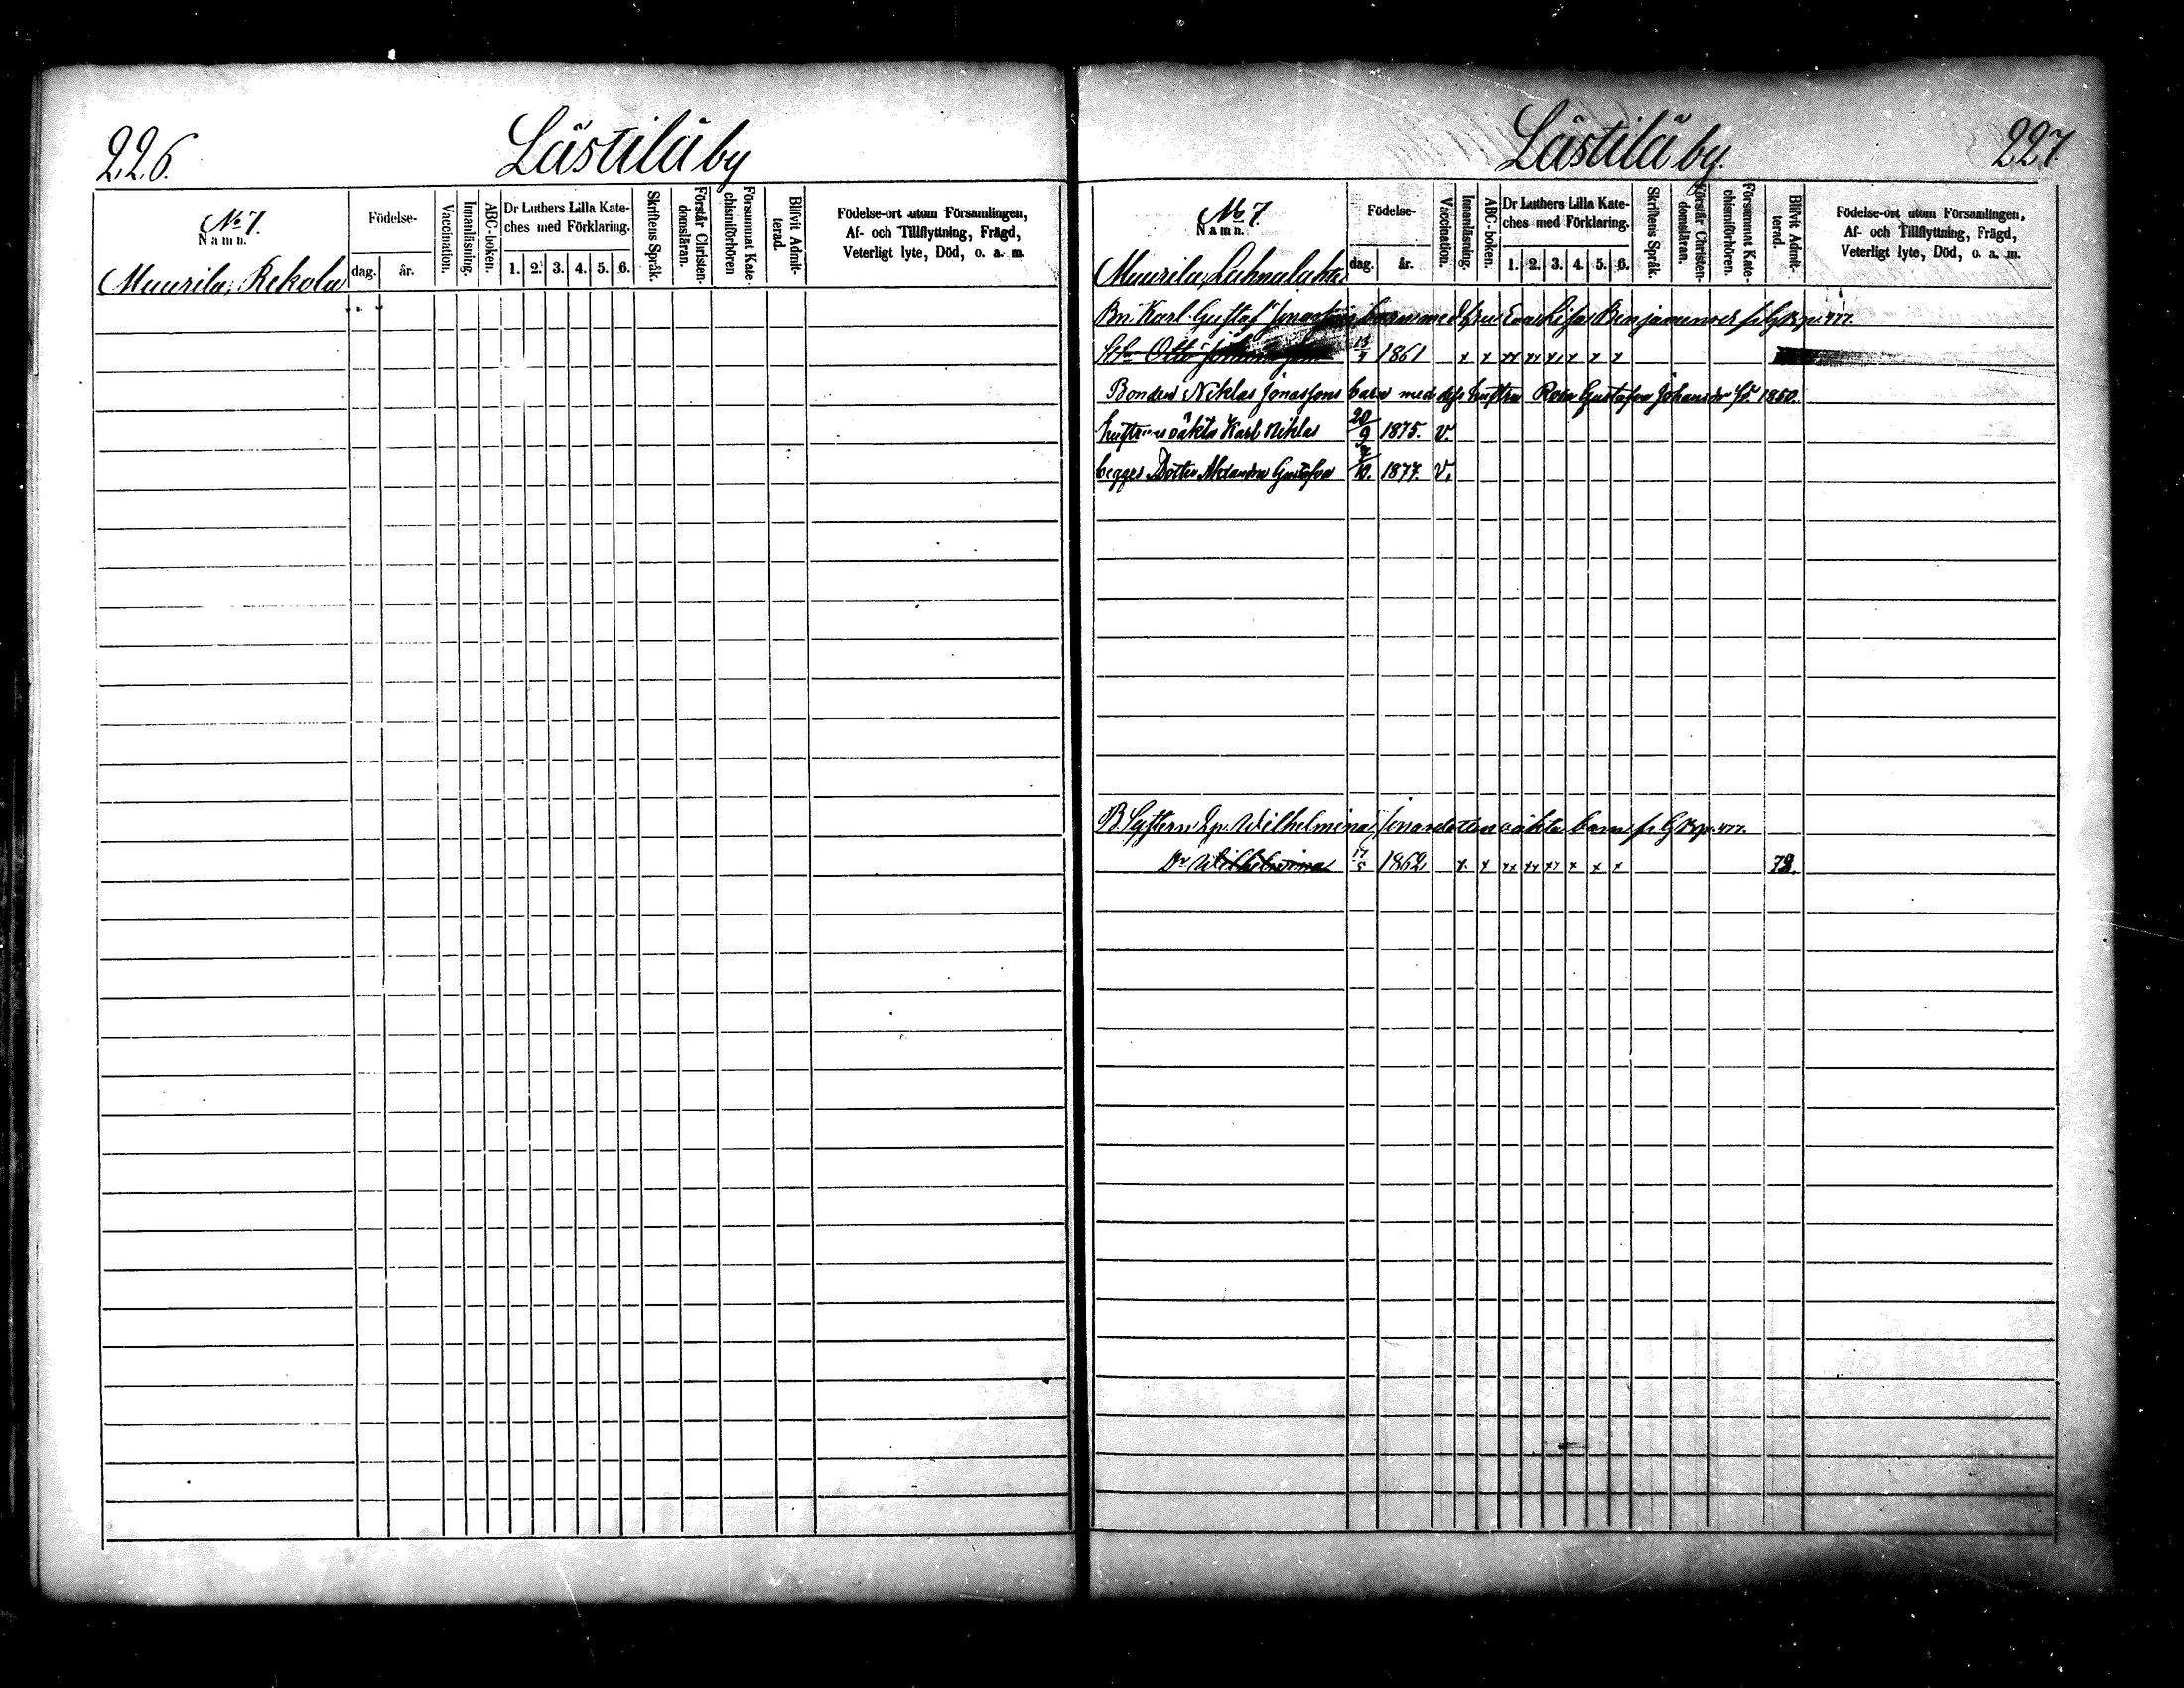 226.
Lästilä by
No 7.
Namn.
Muurila, Rekola
Födelse-
dag.
år.
Vaccination.
Innanläsning.
ABC-boken.
Dr Luthers Lilla Kate-
ches med Förklaring.
1. 2. 3. 4. 5. 6.
Skriftens Språk.
Förstår Christen-
domsläran.
Försummat Kate-
chismiförhören
Blifvit Admit-
terad.
Födelse-ort utom Församlingen,
Af- och Tillflyttning, Frägd,
Veterligt lyte, Död, o. a. m.
Lästilä by.
227
No 7.
Namn.
Muurila, Lahnalahti
Födelse-
dag.
år.
Vaccination.
Innanläsning.
ABC-boken.
Dr Luthers Lilla Kate-
ches med Förklaring.
1. 2. 3. 4. 5. 6.
Skriftens Språk.
Förstår Christen-
domsläran.
Försummat Kate-
chismiförhören.
Blifvit Admit-
terad.
Födelse-ort utom Församlingen,
Af- och Tillflyttning, Frägd,
Veterligt lyte, Död, o. a. m.
Bn. Karl Gustaf barn med Eva Lisa
Otto 1861 x x xx xx xx x x x
Bonden Niklas Jonassons barn med dess hustru Gustafva Johansdr 1850.
hustruns oäkta Karl Niklas 20/9 1875. v.
begges Dotter Alexandra Gustafva 1877. v.
Wilhelmina oäkta barn
Dr Wilhelmina 17/5 1862. x x xx xx xx x x x 78.